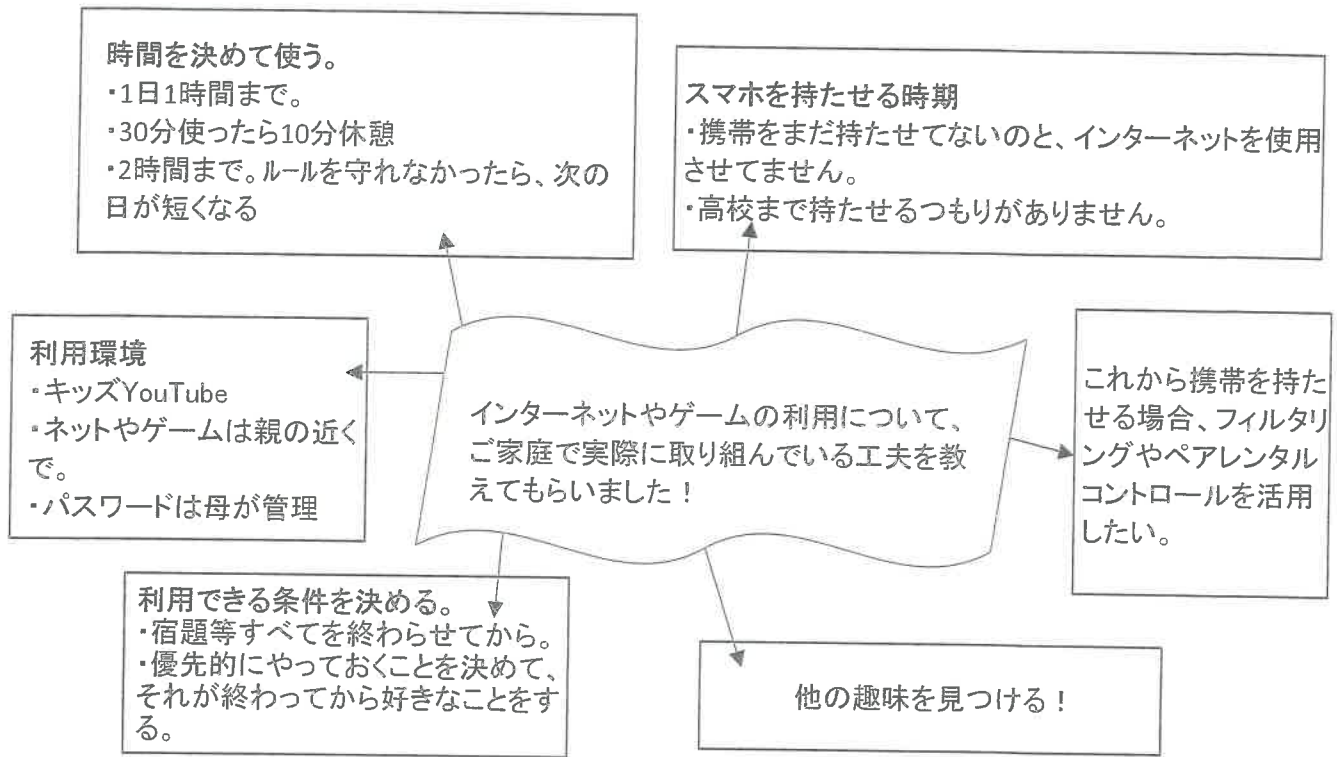 時間を決めて使う。
・1日1時間まで。
・30分使ったら10分休憩
・2時間まで。ルールを守れなかったら、次の
日が短くなる
スマホを持たせる時期
・携帯をまだ持たせてないのと、インターネットを使用
させてません。
・高校まで持たせるつもりがありません。
利用環境
・キッズYouTube
・ネットやゲームは親の近く
で。
・パスワードは母が管理
インターネットやゲームの利用について、
ご家庭で実際に取り組んでいる工夫を教
えてもらいました！
これから携帯を持た
せる場合、フィルタリ
ングやペアレンタル
コントロールを活用
したい。
利用できる条件を決める。
・宿題等すべてを終わらせてから。
・優先的にやっておくことを決めて、
それが終わってから好きなことをす
る。
他の趣味を見つける！